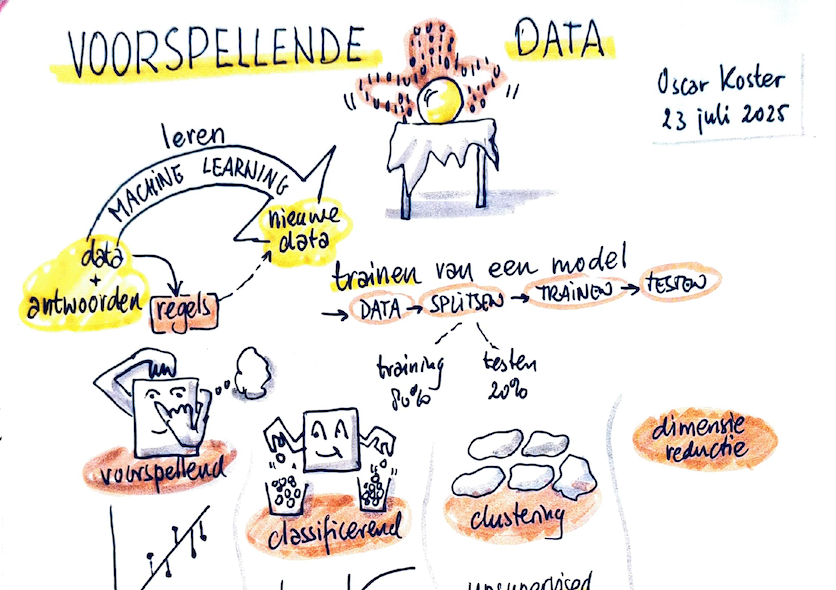 VOORSPELLENDE DATA
Oscar Koster
23 juli 2025
leren
MACHINE LEARNING
nieuwe
data
data
+
antwoorden
regels
trainen van een model
→ DATA → SPLITSEN → TRAINEN → TESTEN
training
80%
testen
20%
voorspellend
classificerend
clustering
dimensie
reductie
unsupervised